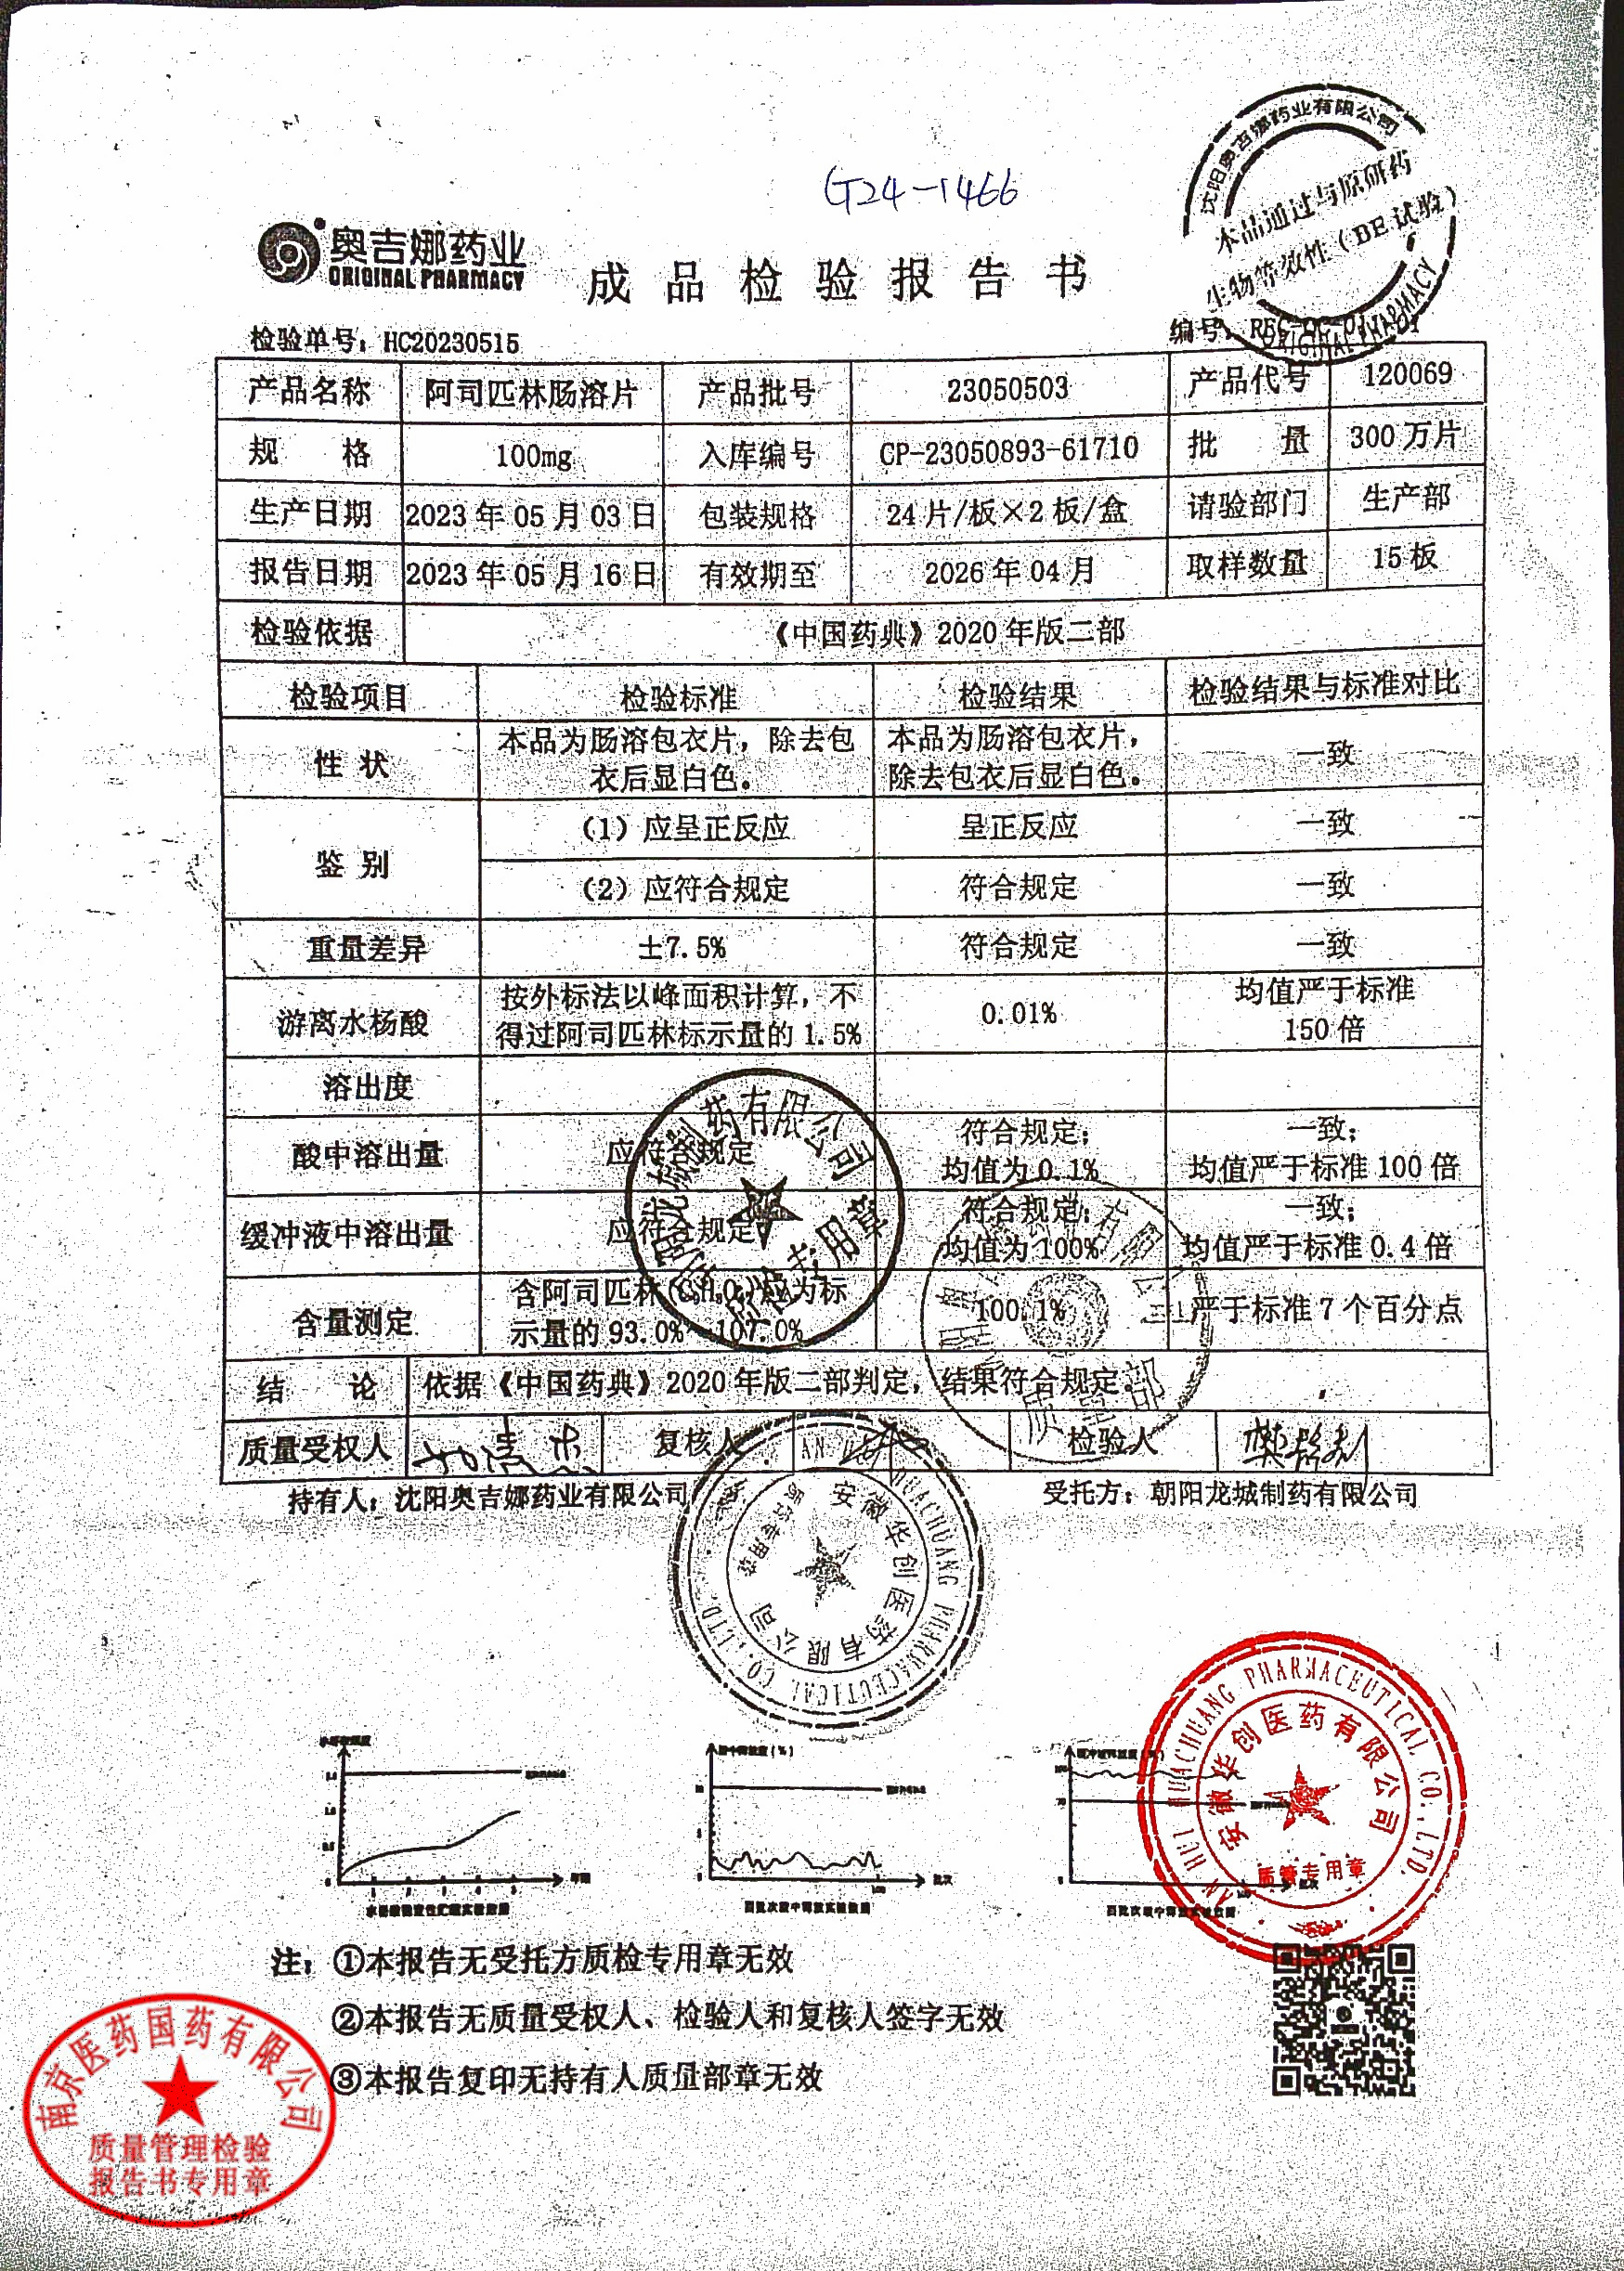 G24-1466
沈阳奥吉娜药业有限公司
本品通过与原研药
生物等效性（BE试验）
ORIGINAL PHARMACY
奥吉娜药业
ORIGINAL PHARMACY
成品检验报告书
检验单号：HC20230515 编号：
产品名称 阿司匹林肠溶片 产品批号 23050503 产品代号 120069
规 格 100mg 入库编号 CP-23050893-61710 批 量 300万片
生产日期 2023年05月03日 包装规格 24片/板×2板/盒 请验部门 生产部
报告日期 2023年05月16日 有效期至 2026年04月 取样数量 15板
检验依据 《中国药典》2020年版二部
检验项目 检验标准 检验结果 检验结果与标准对比
性 状 本品为肠溶包衣片，除去包衣后显白色。 本品为肠溶包衣片，除去包衣后显白色。 一致
鉴 别 （1）应呈正反应 呈正反应 一致
（2）应符合规定 符合规定 一致
重量差异 ±7.5% 符合规定 一致
游离水杨酸 按外标法以峰面积计算，不得过阿司匹林标示量的1.5% 0.01% 均值严于标准150倍
溶出度
酸中溶出量 应符合规定 符合规定；均值为0.1% 一致；均值严于标准100倍
缓冲液中溶出量 应符合规定 符合规定；均值为100% 一致；均值严于标准0.4倍
含量测定 含阿司匹林（C₉H₈O₄）应为标示量的93.0%～107.0% 100.1% 严于标准7个百分点
结 论 依据《中国药典》2020年版二部判定，结果符合规定
质量受权人 复核人 检验人
持有人：沈阳奥吉娜药业有限公司 受托方：朝阳龙城制药有限公司
质量部
AN HUI HUACHUANG PHARMACEUTICAL CO.,LTD.
安徽华创医药有限公司
质管专用章
AN HUI HUACHUANG PHARMACEUTICAL CO.,LTD.
安徽华创医药有限公司
质管专用章
注：①本报告无受托方质检专用章无效
②本报告无质量受权人、检验人和复核人签字无效
③本报告复印无持有人质量部章无效
南京医药国药有限公司
质量管理检验
报告书专用章